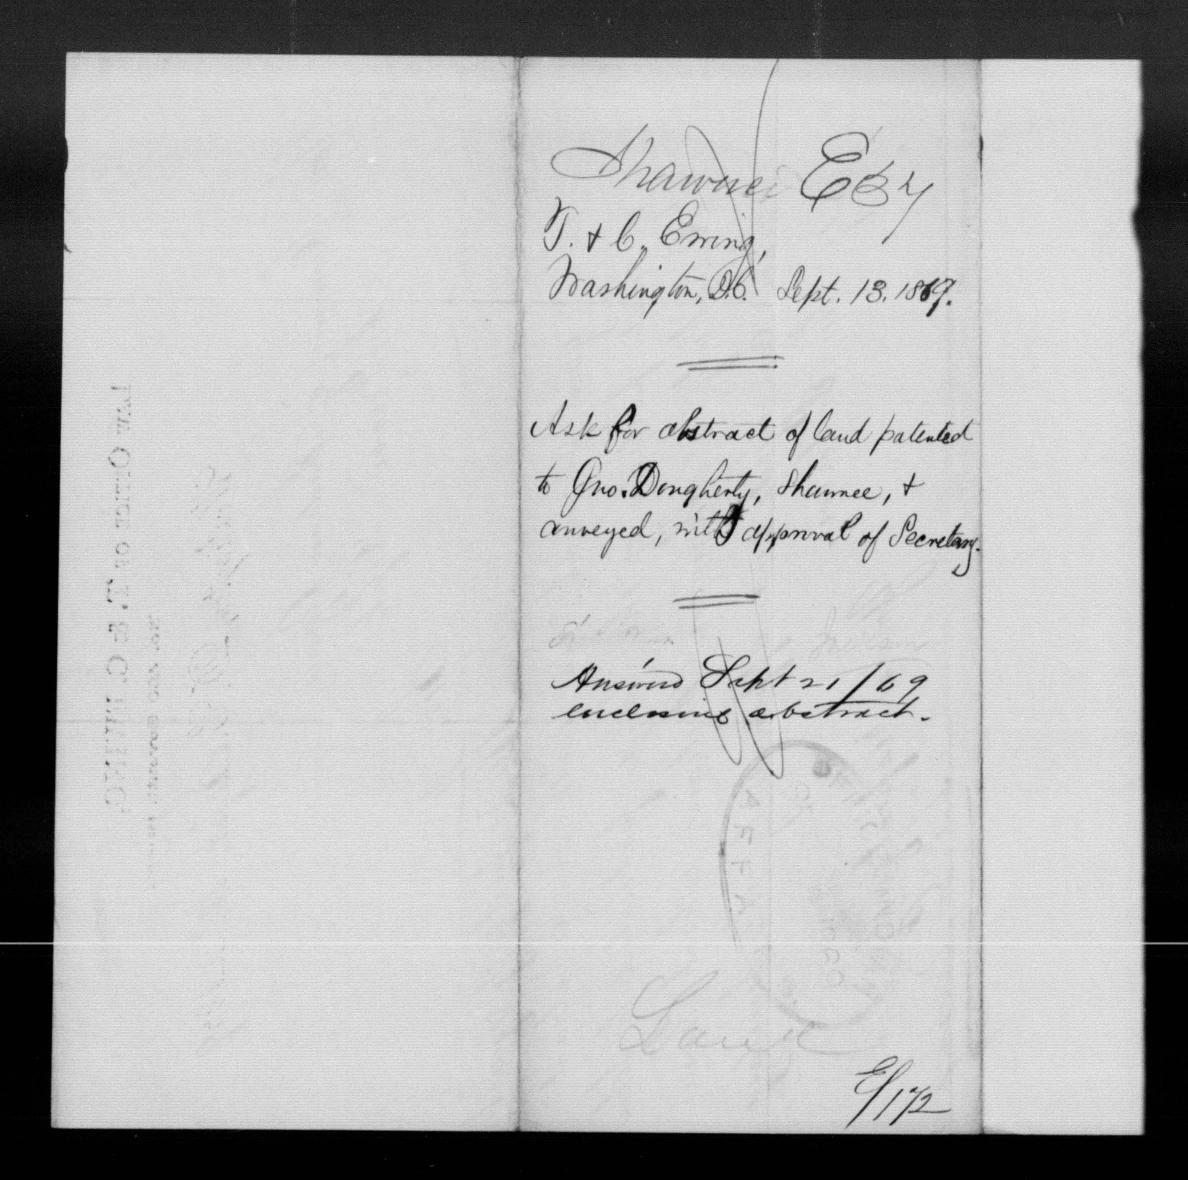 Shawnee E 84
T. & C. Ewing,
Washington, D.C. Sept. 13. 1869.
Ask for abstract of land patented
to Jno. Dougherty, Shawnee, &
conveyed, with approval of Secretary.
Answered Sept 21/69
enclosing abstract.
Land
E/172
LAW OFFICE OF T. & C. EWING